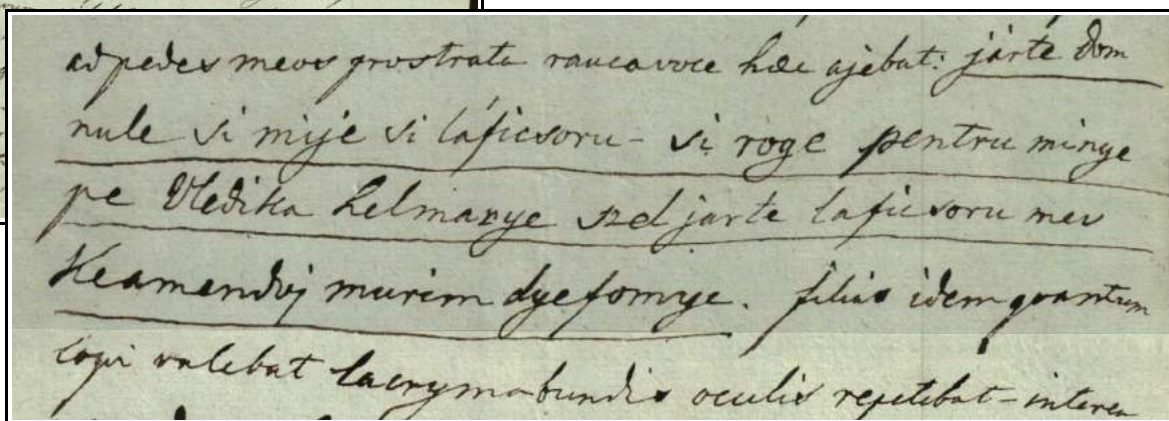 ad pedes meos prostrata rauca voce hæc ajebat: járte dom
nule si mije si láficsoru - si roge pentru minye
pe Vledika helmarye szel jarte laficsoru meu
Keamendoj murim dye fomye. filius idem quantum
loqui valebat lacrymabundis oculis repetebat - interea